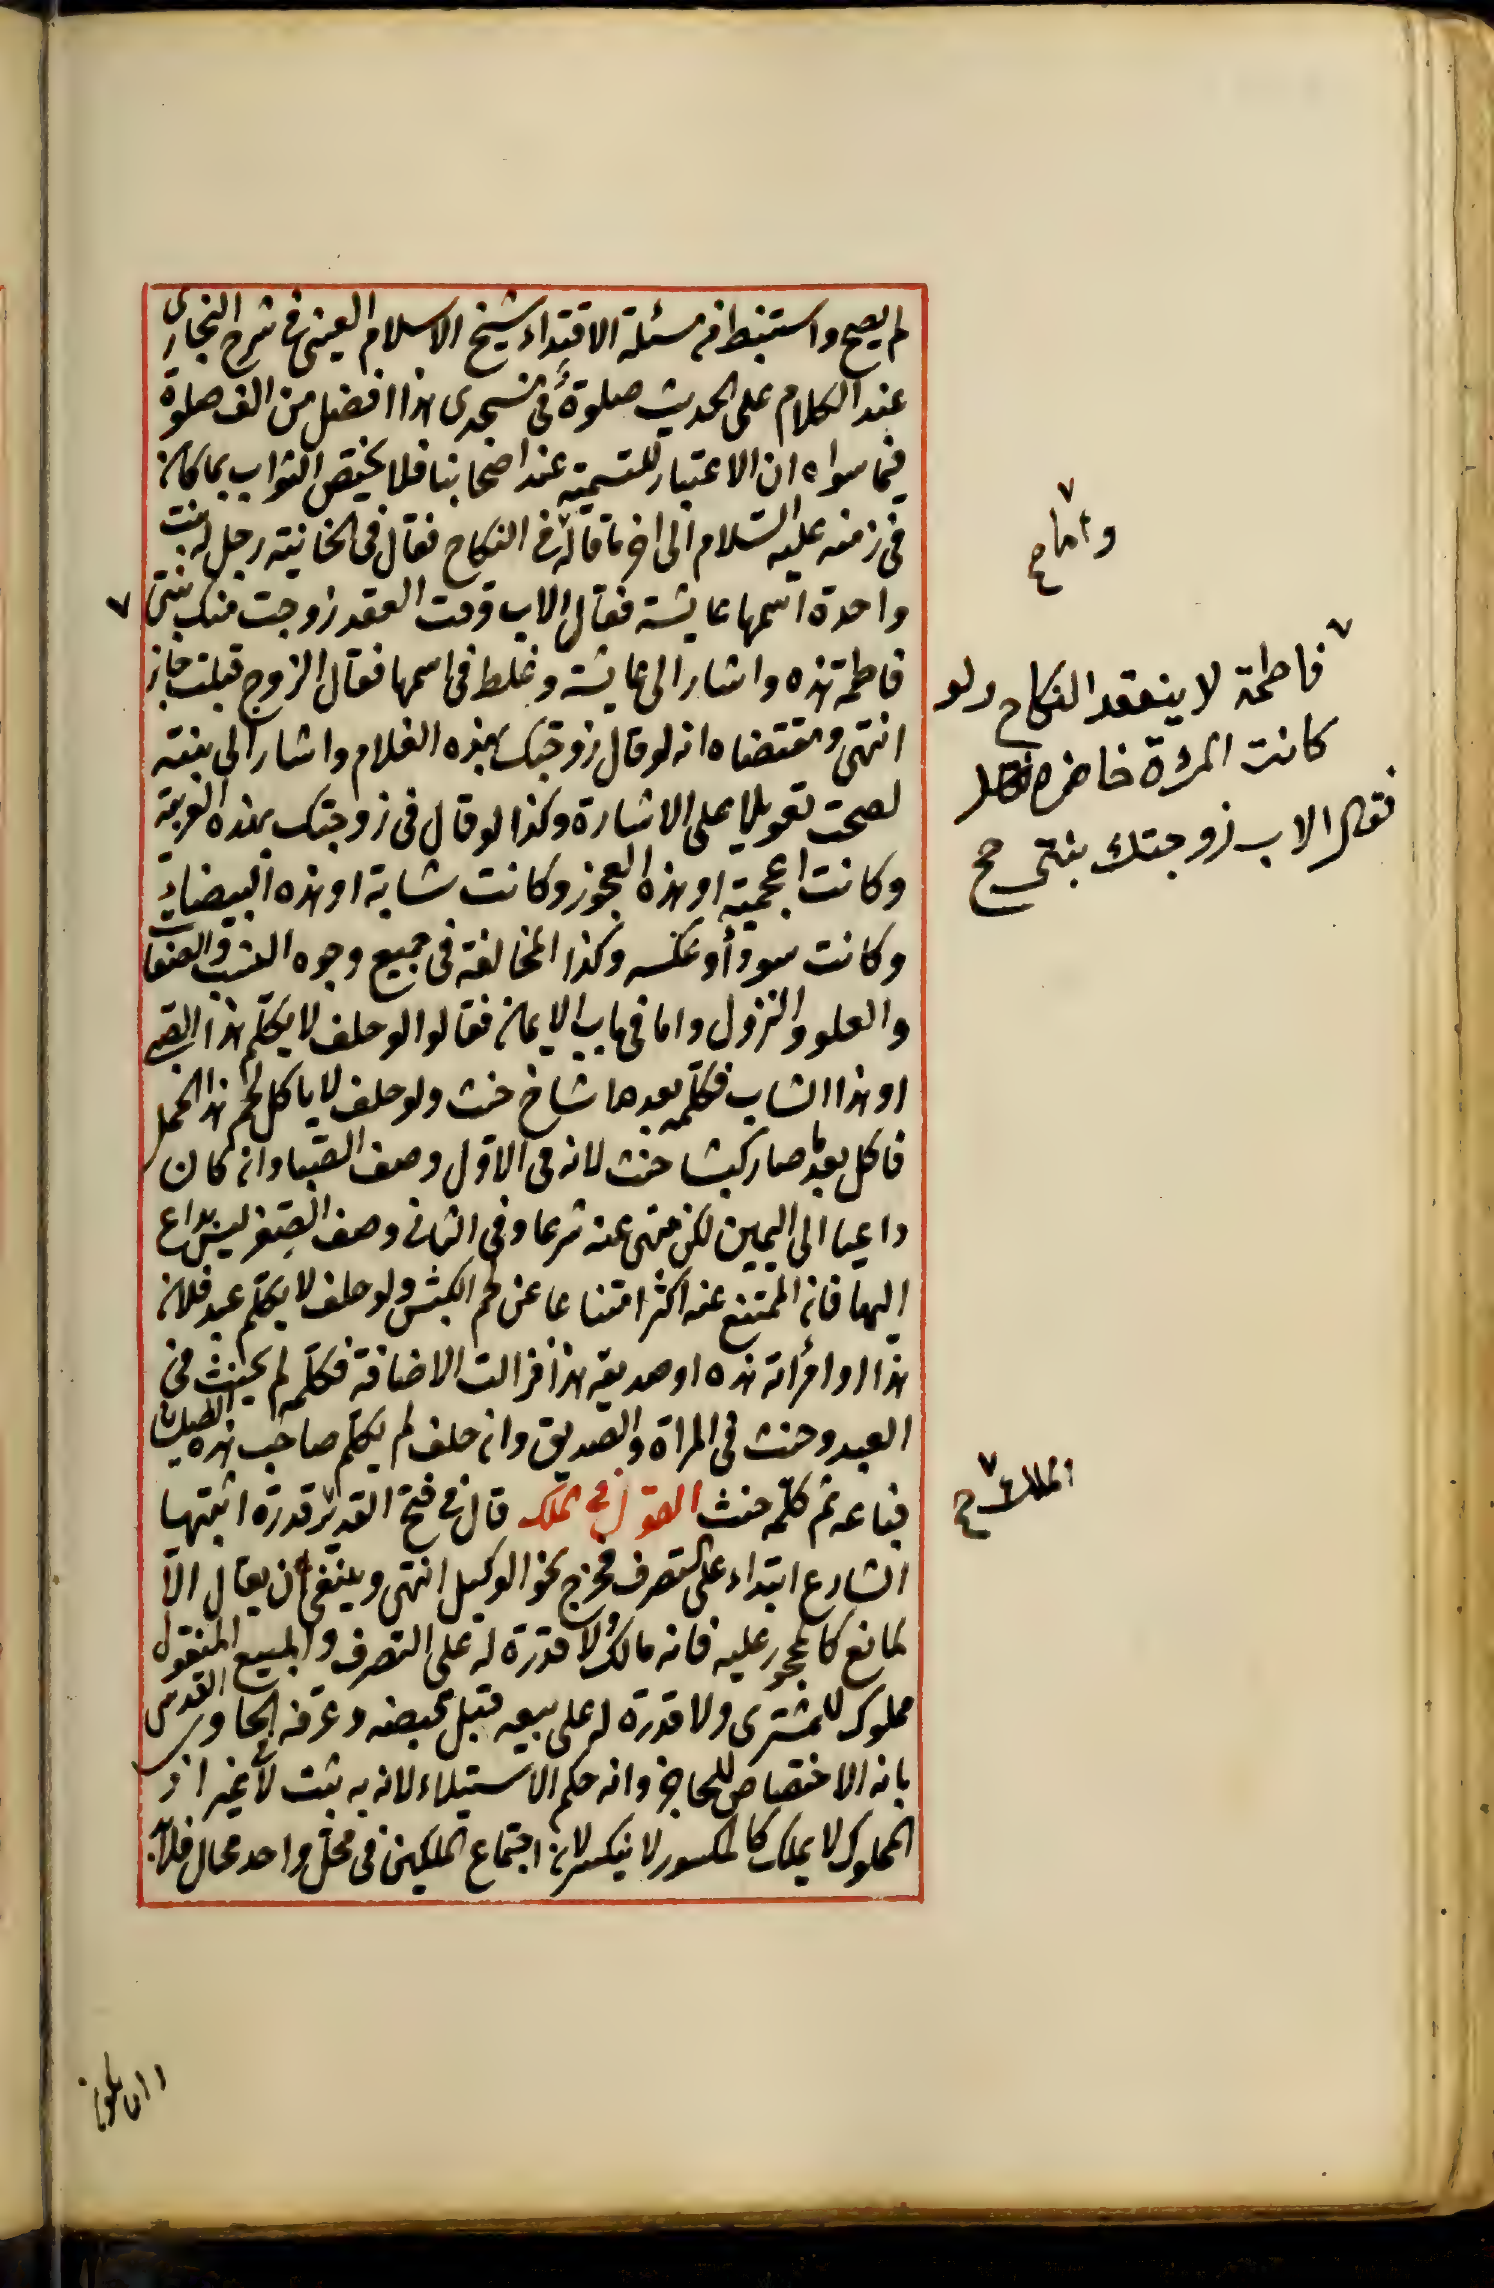 لم يصح واستنبط من مسئلة الاقتداء شيخ الاسلام العيني في شرح البخاري
عند الكلام على الحديث صلوة في مسجدي هذا افضل من الف صلوة
فيما سواه ان الاعتبار للتسمية عند اصحابنا فلا يختص الثواب بما كان
في زمنه عليه السلام الى اخر ما قاله في النكاح فقال في الخانية رجل له بنت
واحدة اسمها عايشة فقال الاب وقت العقد زوجت منك بنتي
فاطمة هذه واشار الى عايشة وغلط في اسمها فقال الزوج قبلت جاز
انتهى ومقتضاه انه لو قال زوجتك هذه الغلام واشار الى بنته
لصحت تعويلا على الاشارة وكذا لو قال في زوجتك هذه العربية
وكانت اعجمية او هذه العجوز وكانت شابة او هذه البيضاء
وكانت سودأ او عكسه وكذا المخالفة في جميع وجوه النسب والصفا
والعلو والنزول واما في باب الايمان فقالوا لو حلف لا يكلم هذا الصبي
او هذا الشاب فكلمه بعد ما شاخ حنث ولو حلف لا ياكل لحم هذا الحمل
فاكل بعد ما صار كبشا حنث لانه في الاول وصف الصبا وان كان
داعيا الى اليمين لكن منهى عنه شرعا وفي الثاني وصف الصغر ليس بداع
اليها فان الممتنع عنه اكثر امتناعا عن لحم الكبش ولو حلف لا يكلم عبد فلان
هذا او امرأته هذه او صديقه هذا فزالت الاضافة فكلمه لم يحنث في
العبد وحنث في المراة والصديق وان حلف لم يكلم صاحب هذه الطيلسان
فباعه ثم كلمه حنث القول في الملك قال في فتح القدير قدرة اثبتها
الشارع ابتداء على التصرف فخرج نحو الوكيل انتهى وينبغي ان يقال الا
لمانع كالمحجور عليه فانه مالك ولا قدرة له على التصرف والمبيع المنقول
مملوك للمشتري ولا قدرة له على بيعه قبل قبضه وعرفه الحاوي القدسي
بانه الاختصاص للحاجز وانه حكم الاستيلاء لانه به ثبت لا غير اذ
المملوك لا يملك كالمكسور لا ينكسر لان اجتماع الملكين في محل واحد محال فلا
واما ح
فاطمة لا ينعقد النكاح ولو
كانت المرءة حاضرة
فقال الاب زوجتك بنتي صح
الملك ح